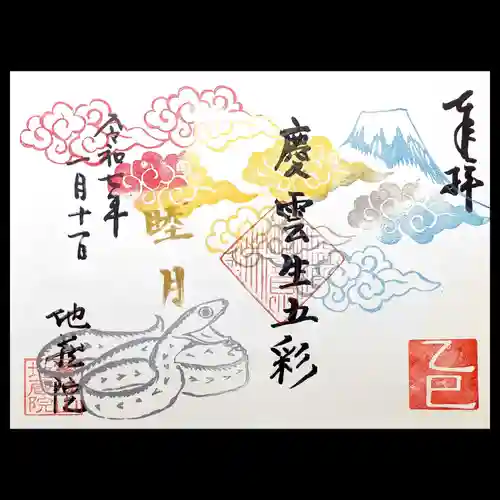 奉拝
慶雲生五彩
睦月
令和七年
一月十一日
地蔵院
乙巳